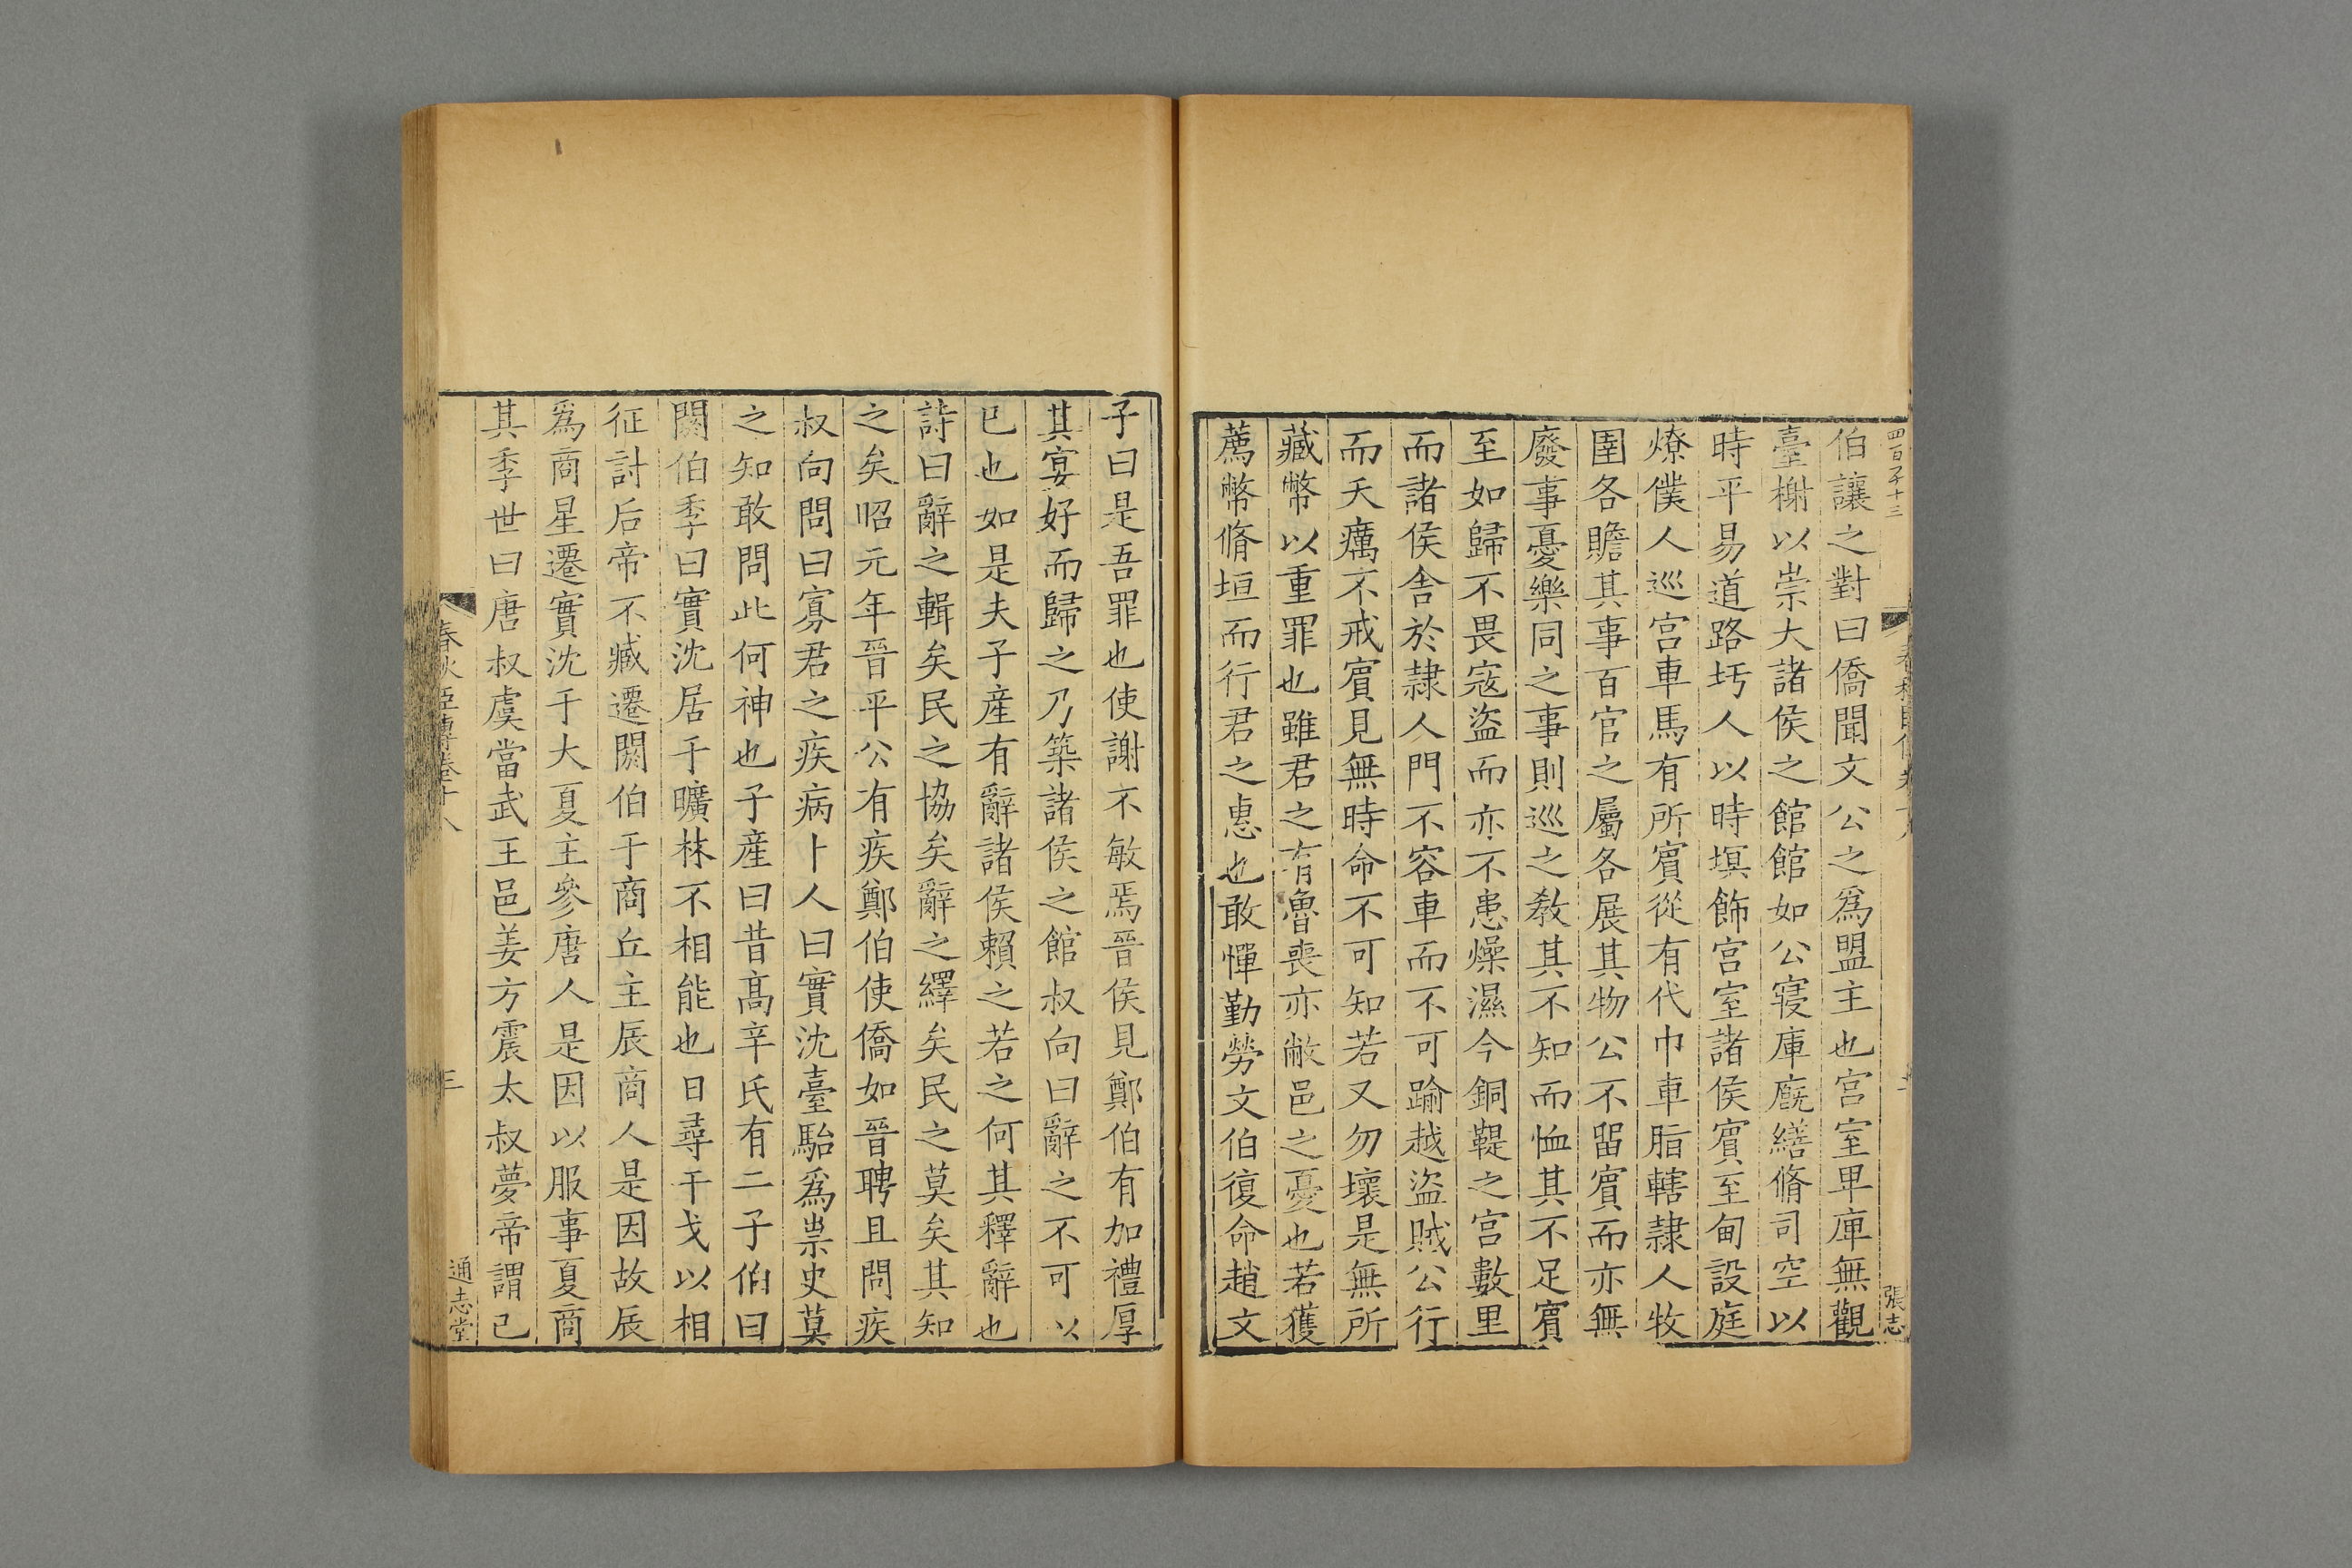 四百子十三
張志
伯讓之對曰僑聞文公之爲盟主也宫室卑庫無觀
臺榭以崇大諸侯之館館如公寝庫廐繕脩司空以
時平易道路圬人以時塓飾宫室諸侯賔至甸設庭
燎僕人巡宫車馬有所賔從有代巾車脂轄隷人牧
圉各瞻其事百官之屬各展其物公不留賔而亦無
廢事憂樂同之事則巡之教其不知而恤其不足賔
至如歸不畏寇盜而亦不患燥濕今銅鞮之宫數里
而諸侯舍於隷人門不容車而不可踰越盜賊公行
而夭癘不戒賔見無時命不可知若又勿壞是無所
藏幣以重罪也雖君之有魯喪亦敝邑之憂也若獲
薦幣脩垣而行君之惠也敢憚勤勞文伯復命趙文
子曰是吾罪也使謝不敏焉晉侯見鄭伯有加禮厚
其宴好而歸之乃築諸侯之館叔向曰辭之不可以
已也如是夫子産有辭諸侯賴之若之何其釋辭也
詩曰辭之輯矣民之協矣辭之繹矣民之莫矣其知
之矣昭元年晉平公有疾鄭伯使僑如晉聘且問疾
叔向問曰寡君之疾病卜人曰實沈臺駘爲祟史莫
之知敢問此何神也子産曰昔髙辛氏有二子伯曰
閼伯季曰實沈居于曠林不相能也日尋干戈以相
征討后帝不臧遷閼伯于商丘主辰商人是因故辰
爲商星遷實沈于大夏主參唐人是因以服事夏商
其季世曰唐叔虞當武王邑姜方震太叔夢帝謂己
春秋臣傳卷十八
三
通志堂